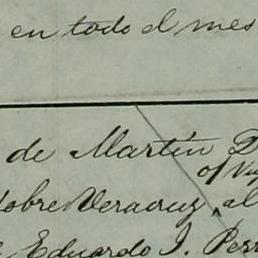 en todo el mes
de Martín D
of Vig
sobre Veracruz, al
Eduardo J. Perr